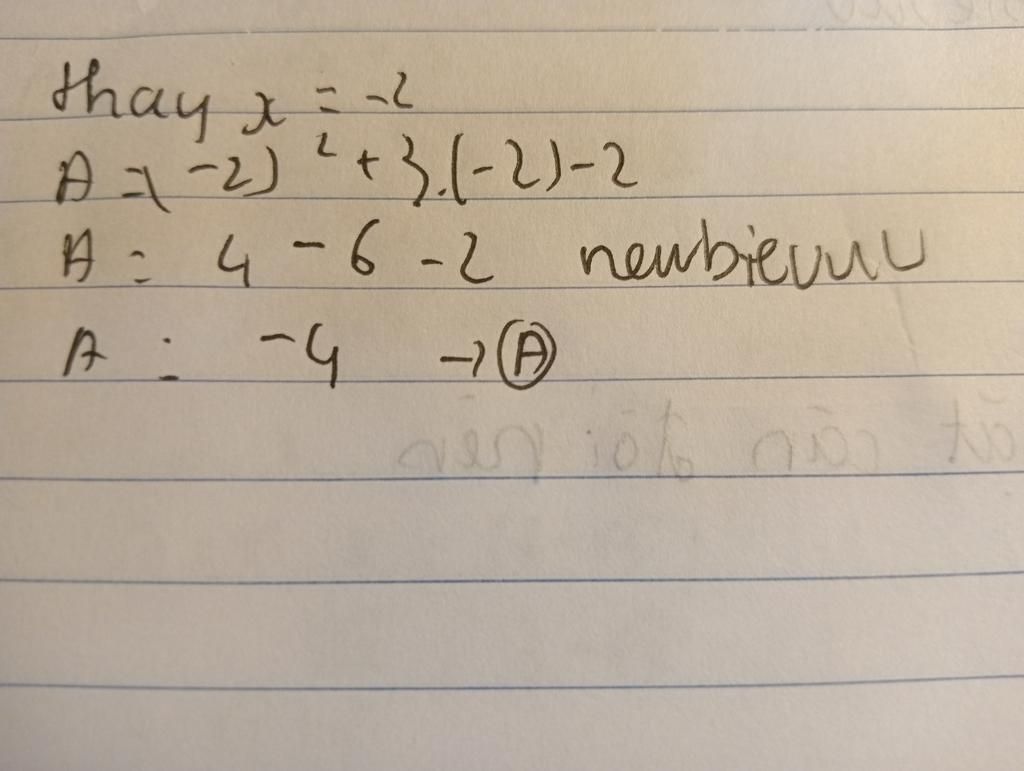 thay x = -2
A = (-2)² + 3.(-2) - 2
A = 4 - 6 - 2 newbievuu
A = -4 → A